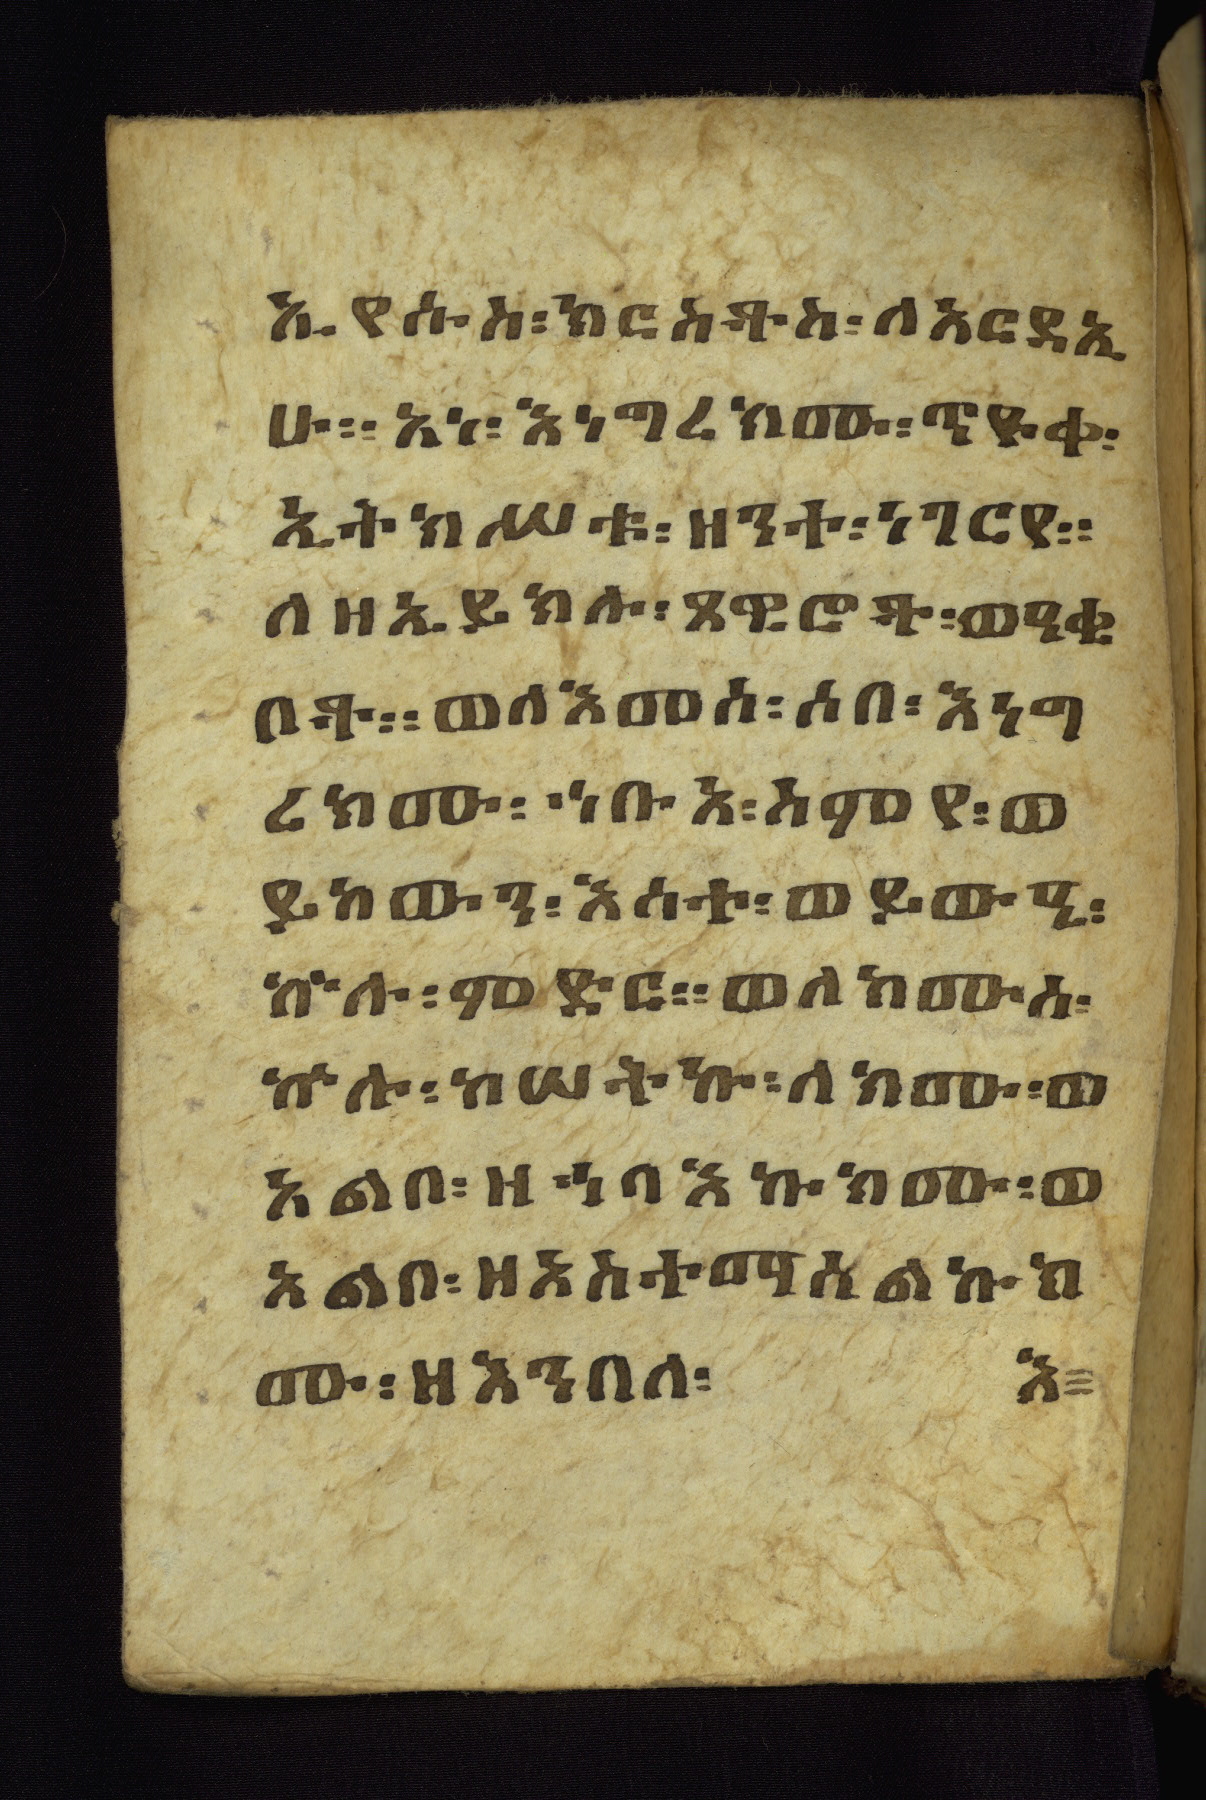 ኢየሱስ፡ክርስቶስ፡ለአርዳኢ
ሁ፡፡አነ፡እነግረክሙ፡ጥዩቀ፡
ኢትክሥቱ፡ዘንተ፡ነገርየ፡፡
ለዘኢይክሉ፡ጸዊሮቶ፡ወዓቂ
በቶ፡፡ወለእመሰ፡ሰበ፡እነግ
ረክሙ፡ኀቡአ፡ስምየ፡ወ
ይከውን፡እሳተ፡ወይውዒ፡
ኵሉ፡ምድር፡፡ወለክሙሰ፡
ኵሉ፡ከሠትኩ፡ለክሙ፡ወ
አልቦ፡ዘኀባእኩክሙ፡ወ
አልቦ፡ዘአስተማሰልኩክ
ሙ፡ዘእንበለ፡ እ፡